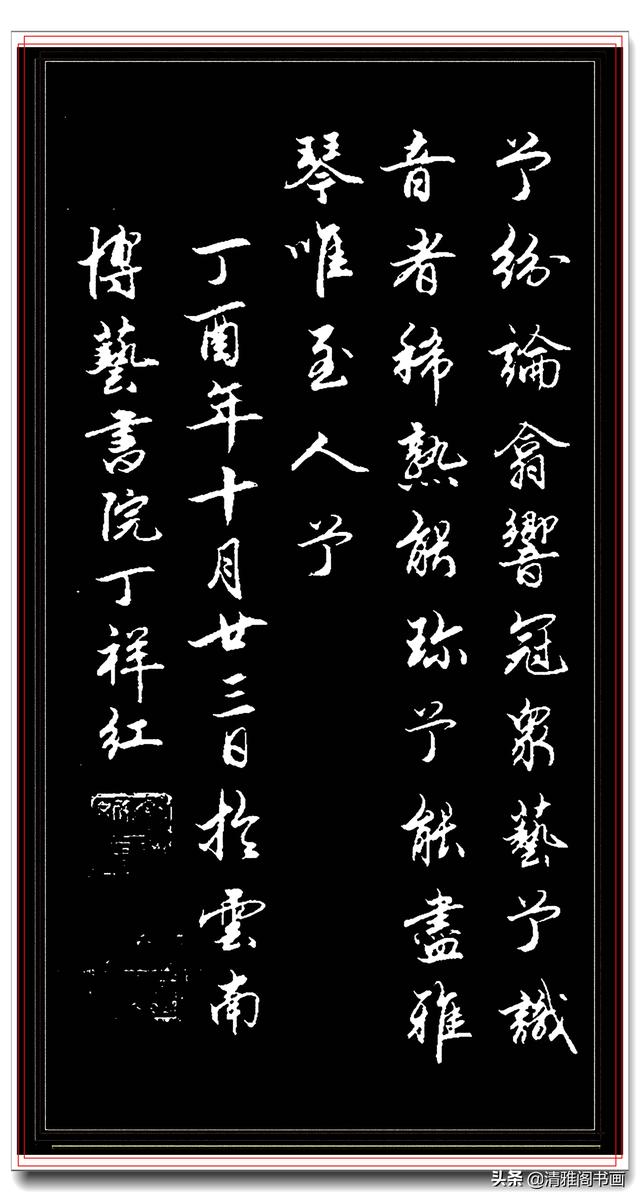 兮紛論翕響冠衆藝兮識
音者稀熟能珎兮能盡雅
琴唯至人兮
丁酉年十月廿三日於雲南
博藝書院丁祥紅
头条 @清雅阁书画